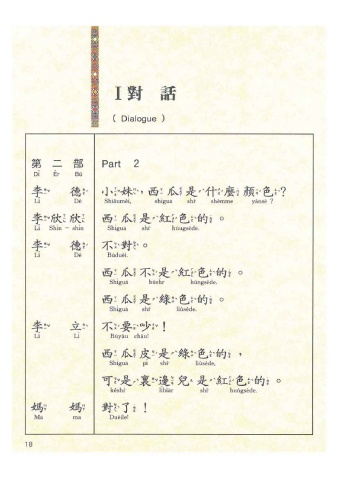 I 對 話
( Dialogue )
第 二 部 Part 2
Dì Èr Bù
李 德 小妹,西瓜是什麼顏色?
Lǐ Dé Shiǎumèi, shīgua shř shémme yánsè?
李欣欣 西瓜是紅色的。
Lǐ Shīn-shīn Shīgua shř húngsède.
李 德 不對。
Lǐ Dé Búduèi.
西瓜不是紅色的。
Shīgua búshř húngsède.
西瓜是綠色的。
Shīgua shř liùsède.
李 立 不要吵!
Lǐ Lì Búyàu chǎu!
西瓜皮是綠色的,
Shīgua pí shř liùsède,
可是裏邊兒是紅色的。
kěshř lǐbiār shř húngsède.
媽 媽 對了!
Mā ma Duèile!
18